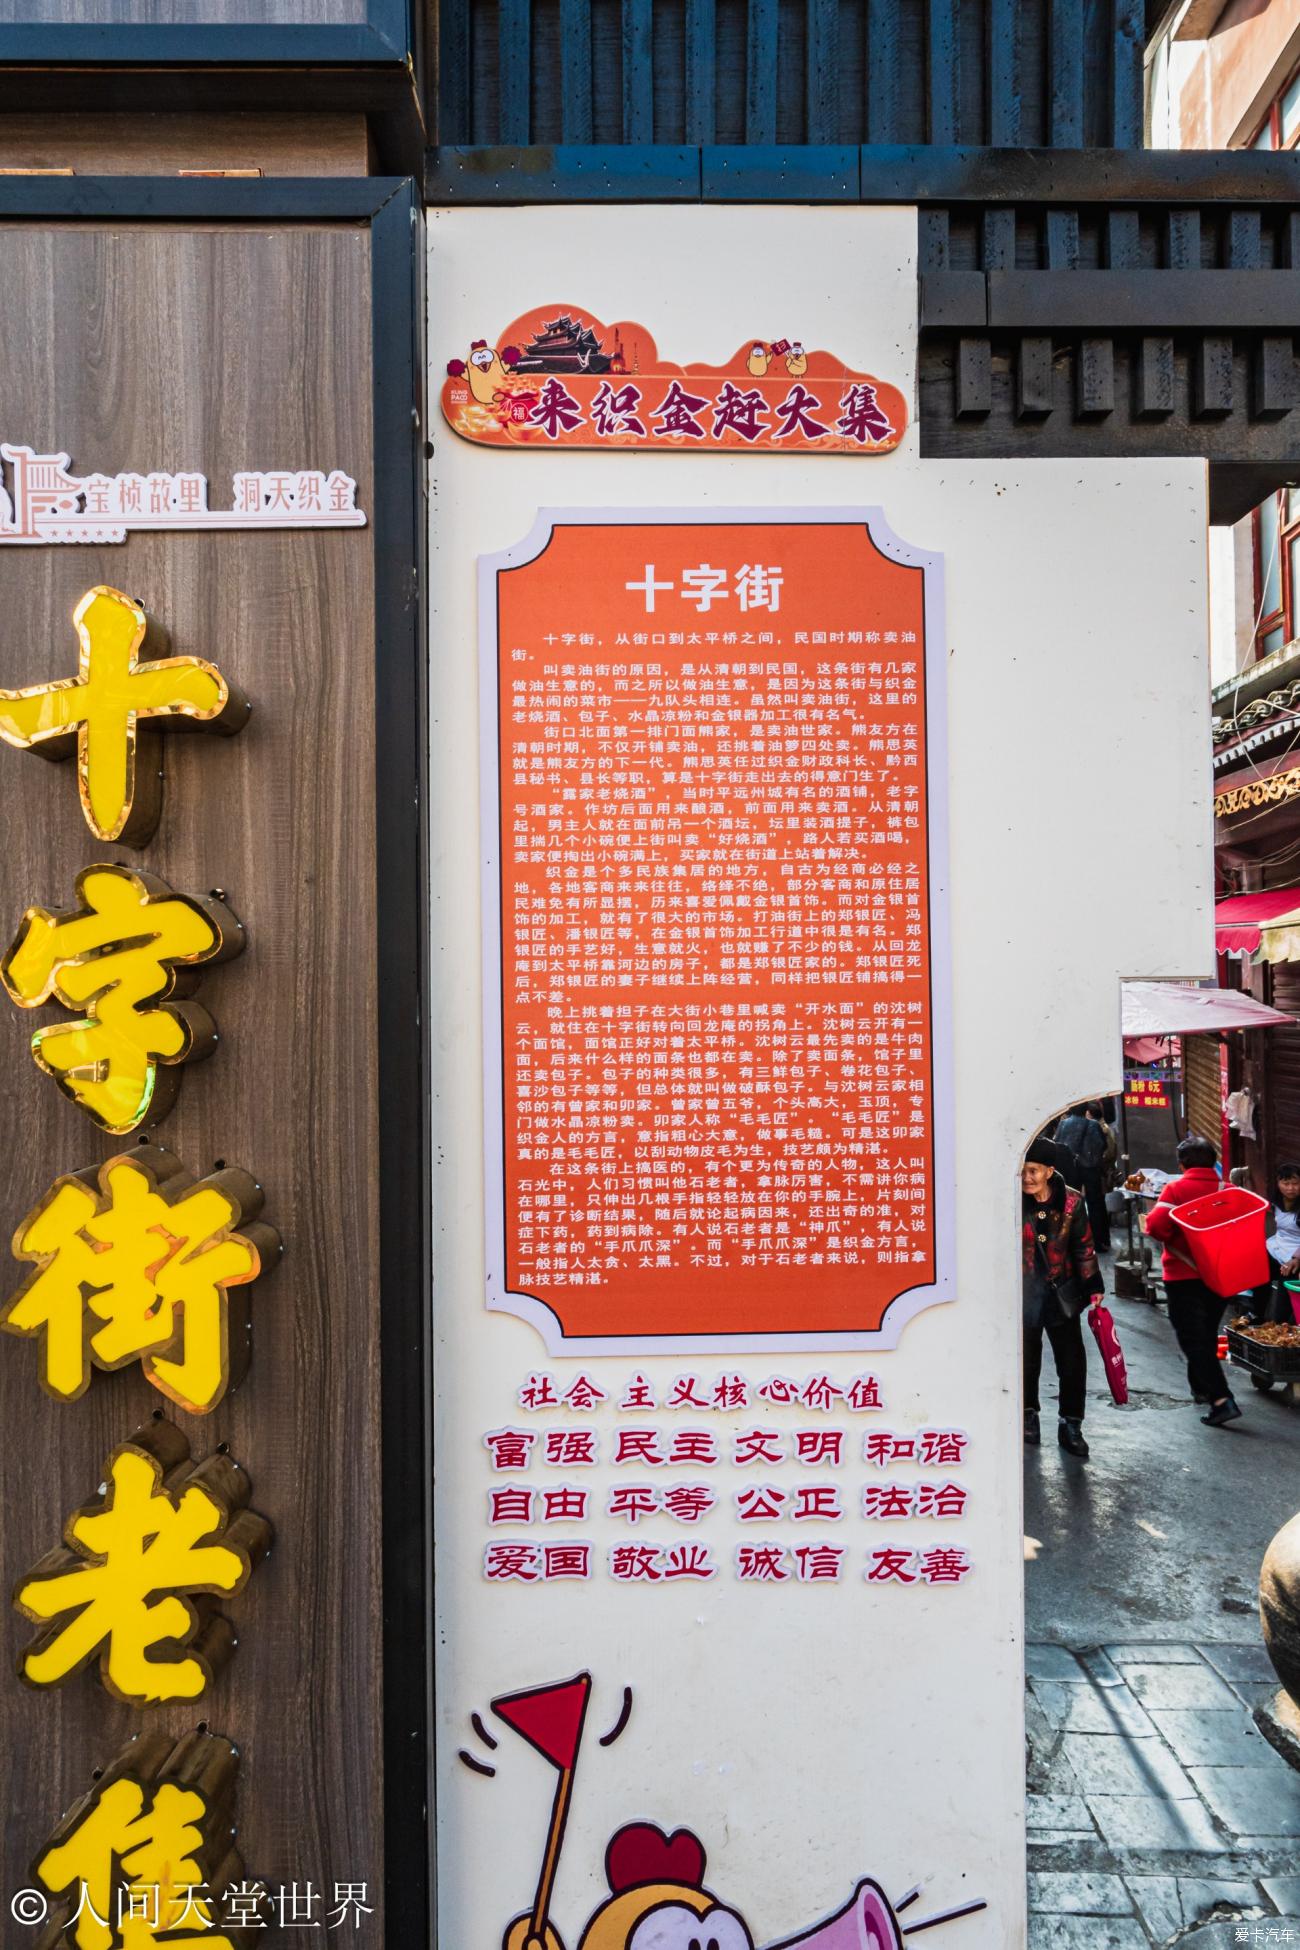 宝桢故里 洞天织金
十字街老集
KUNG PAO
福
来织金赶大集
十字街
十字街，从街口到太平桥之间，民国时期称卖油
街。
叫卖油街的原因，是从清朝到民国，这条街有几家
做油生意的，而之所以做油生意，是因为这条街与织金
最热闹的菜市——九队头相连。虽然叫卖油街，这里的
老烧酒、包子、水晶凉粉和金银器加工很有名气。
街口北面第一排门面熊家，是卖油世家。熊友方在
清朝时期，不仅开铺卖油，还挑着油箩四处卖。熊思英
就是熊友方的下一代。熊思英任过织金财政科长、黔西
县秘书、县长等职，算是十字街走出去的得意门生了。
“露家老烧酒”，当时平远州城有名的酒铺，老字
号酒家。作坊后面用来酿酒，前面用来卖酒。从清朝
起，男主人就在面前吊一个酒坛，坛里装酒提子，裤包
里揣几个小碗便上街叫卖“好烧酒”，路人若买酒喝，
卖家便掏出小碗满上，买家就在街道上站着解决。
织金是个多民族集居的地方，自古为经商必经之
地，各地客商来来往往，络绎不绝，部分客商和原住居
民难免有所显摆，历来喜爱佩戴金银首饰。而对金银首
饰的加工，就有了很大的市场。打油街上的郑银匠、冯
银匠、潘银匠等，在金银首饰加工行道中很是有名。郑
银匠的手艺好，生意就火，也就赚了不少的钱。从回龙
庵到太平桥靠河边的房子，都是郑银匠家的。郑银匠死
后，郑银匠的妻子继续上阵经营，同样把银匠铺搞得一
点不差。
晚上挑着担子在大街小巷里喊卖“开水面”的沈树
云，就住在十字街转向回龙庵的拐角上。沈树云开有一
个面馆，面馆正好对着太平桥。沈树云最先卖的是牛肉
面，后来什么样的面条也都在卖。除了卖面条，馆子里
还卖包子。包子的种类很多，有三鲜包子、卷花包子、
喜沙包子等等，但总体就叫做破酥包子。与沈树云家相
邻的有曾家和卯家。曾家曾五爷，个头高大，玉顶，专
门做水晶凉粉卖。卯家人称“毛毛匠”。“毛毛匠”是
织金人的方言，意指粗心大意，做事毛糙。可是这卯家
真的是毛毛匠，以刮动物皮毛为生，技艺颇为精湛。
在这条街上搞医的，有个更为传奇的人物，这人叫
石光中，人们习惯叫他石老者，拿脉厉害，不需讲你病
在哪里，只伸出几根手指轻轻放在你的手腕上，片刻间
便有了诊断结果，随后就论起病因来，还出奇的准，对
症下药，药到病除。有人说石老者是“神爪”，有人说
石老者的“手爪爪深”。而“手爪爪深”是织金方言，
一般指人太贪、太黑。不过，对于石老者来说，则指拿
脉技艺精湛。
社会主义核心价值
富强 民主 文明 和谐
自由 平等 公正 法治
爱国 敬业 诚信 友善
肠粉 6元
冰粉 糯米糕
© 人间天堂世界
爱卡汽车